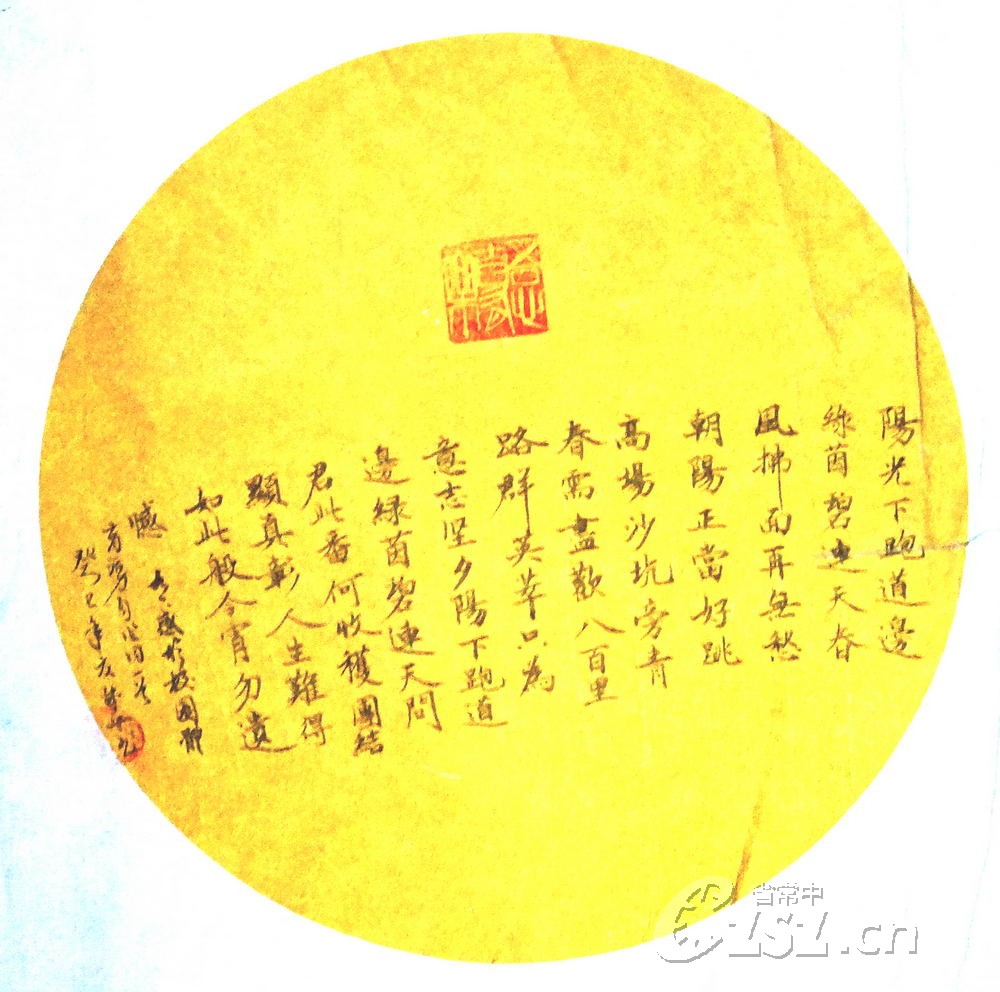 陽光下跑道邊
綠茵碧連天春
風拂面再無愁
朝陽正當好跳
高場沙坑旁青
春需盡歡八百里
路群英萃只為
意志堅夕陽下跑道
邊綠茵碧連天問
君此番何收穫團結
顯真彰人生難得
如此般今宵勿遺
憾
有感於校園
癸巳年
省常中
ZSZ.cn